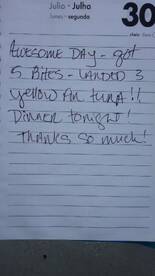 Julio - Julha
lunes - segunda
30
Awesome Day - got
5 Bites - Landed 3
yellow fin tuna!!
Dinner tonight!
Thanks so much!